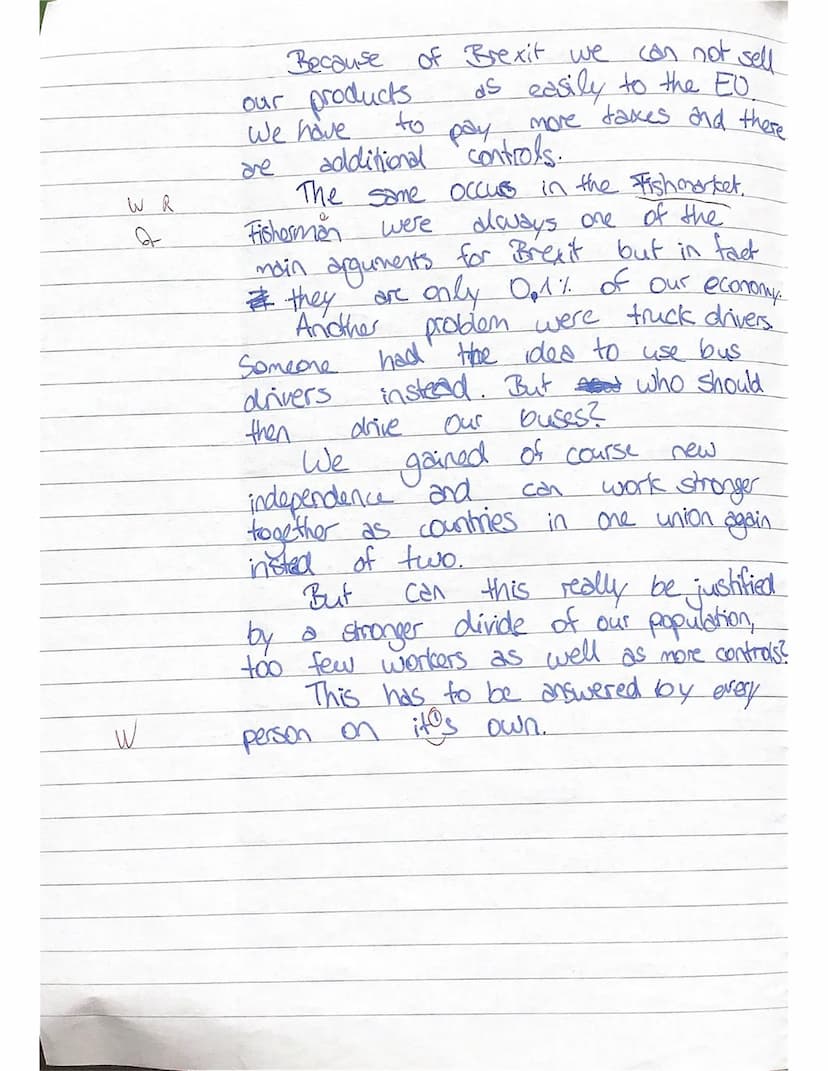 Because of Brexit we can not sell
our products as easily to the EU.
We have to pay more taxes and there
are additional controls.
The same occurs in the Fishmarket.
W R
Fisherman were always one of the
main arguments for Brexit but in fact
they are only 0,1% of our economy.
Another problem were truck drivers.
Someone had the idea to use bus
drivers instead. But who should
then drive our buses?
We gained of course new
independence and can work stronger
together as countries in one union again
insted of two.
But can this really be justified
by a stronger divide of our population,
too few workers as well as more controls?
This has to be answered by every
W person on it's own.